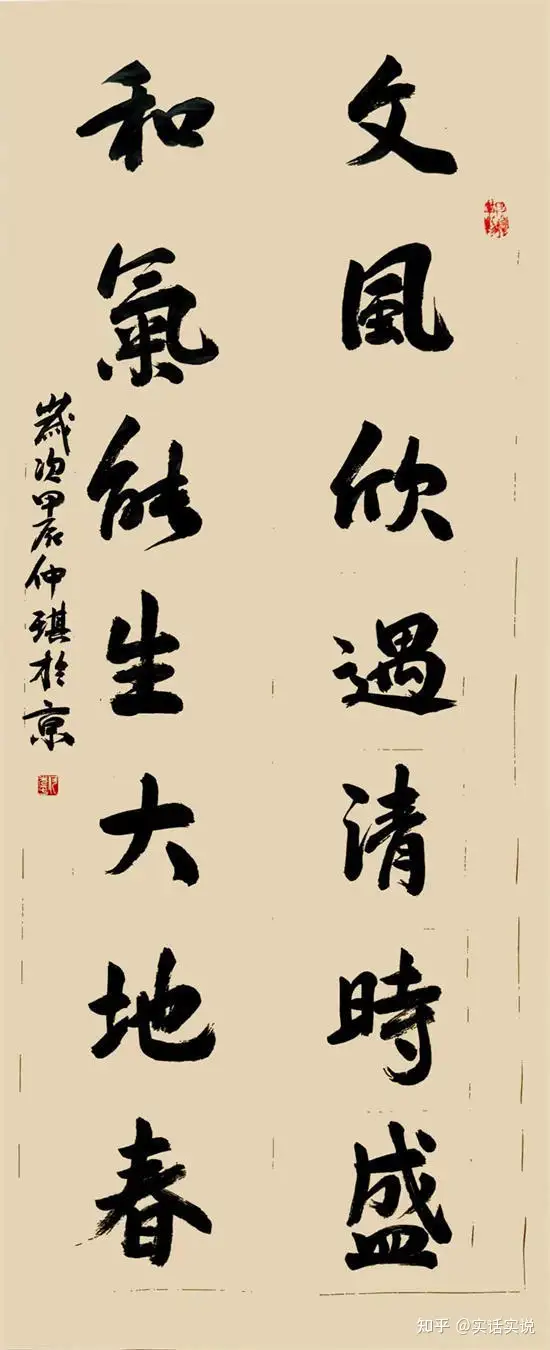 文風欣遇清時盛
和氣能生大地春
歲次甲辰仲琪於京
知乎 @实话实说